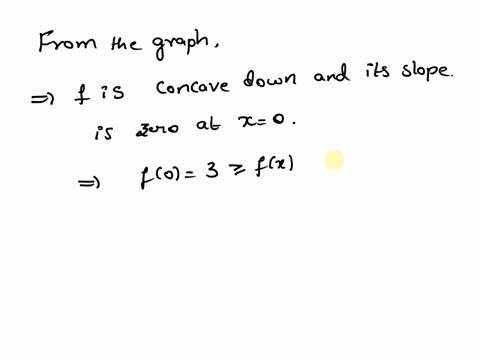 From the graph,
⇒ f is concave down and its slope.
is zero at x=0.
⇒ f(0) = 3 ≥ f(x)